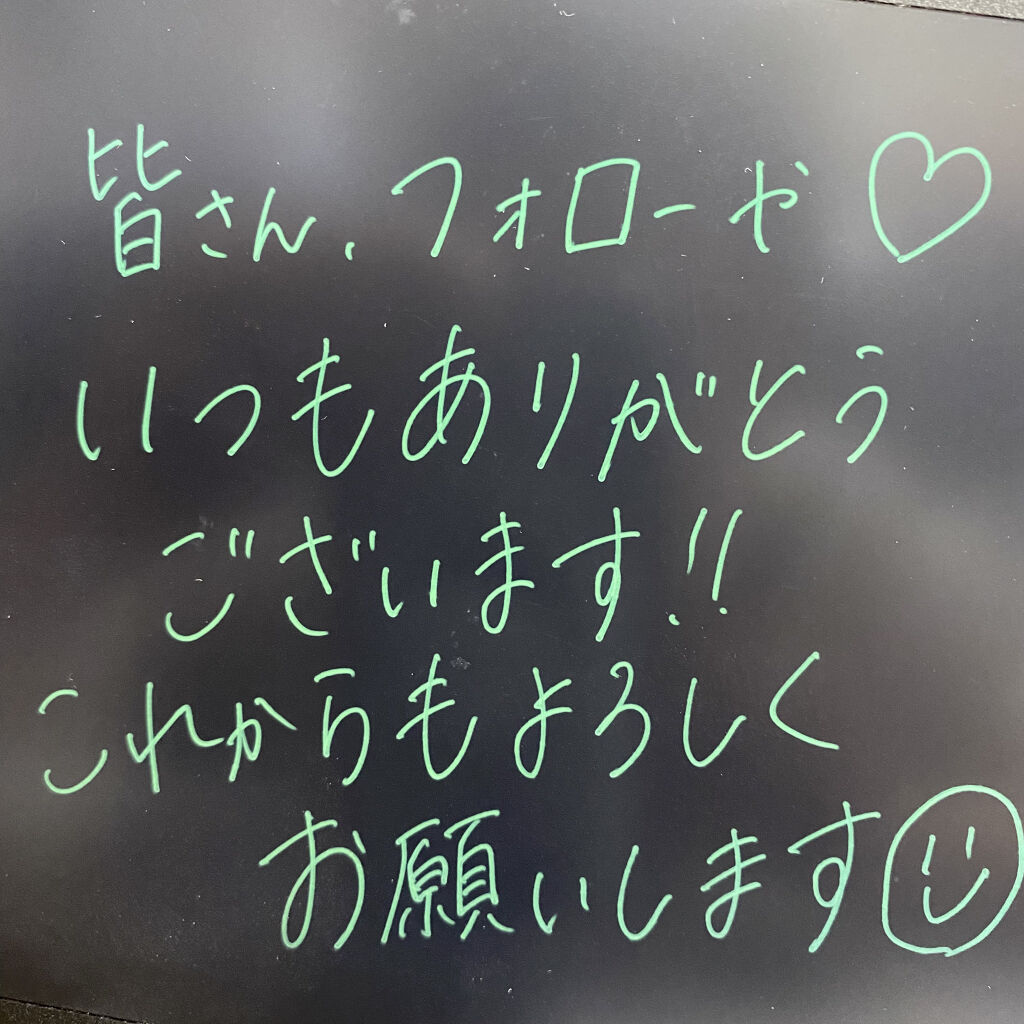 皆さん、フォローや♡
いつもありがとう
ございます!!
これからもよろしく
お願いします☺